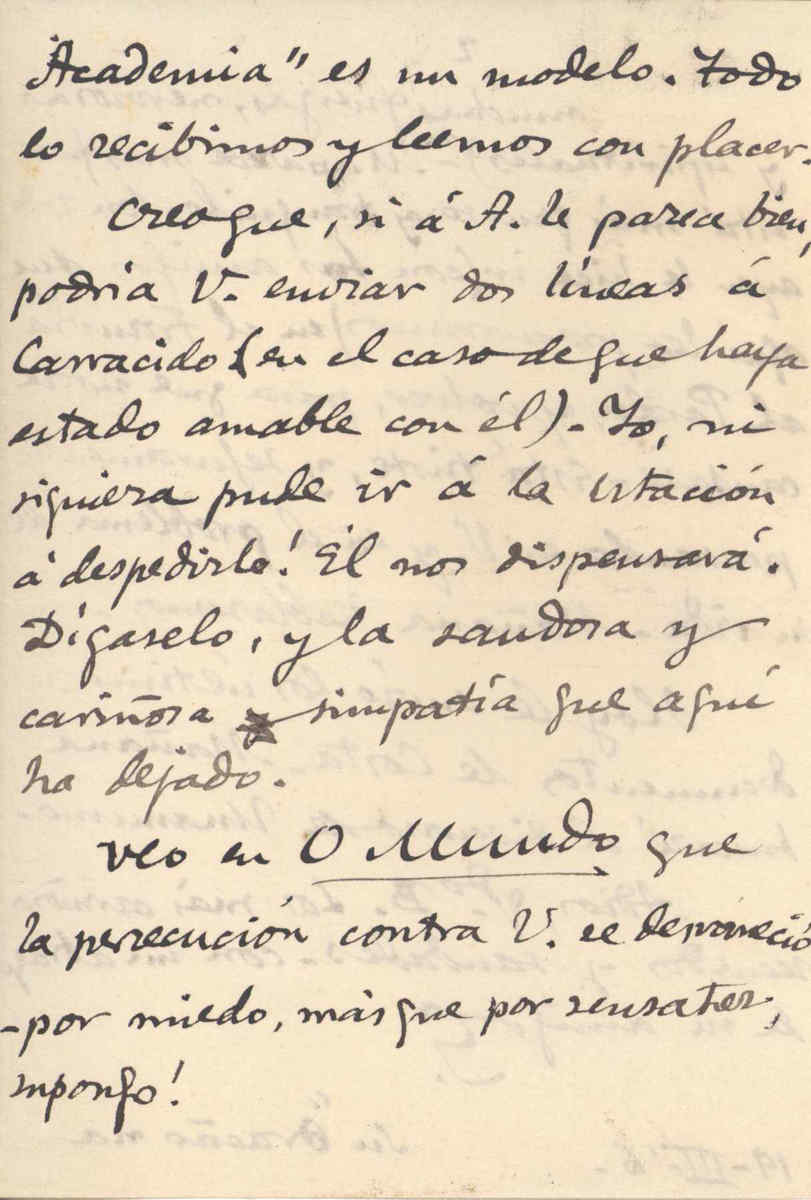 Academia" es un modelo. Todo
lo recibimos y leemos con placer.
Creo que, si á A. le parece bien,
podría V. enviar dos líneas á
Carracido (en el caso de que haya
estado amable con él). Yo, ni
siquiera pude ir á la estación
á despedirle! Él nos dispensará.
Dígaselo, y la saudosa y
cariñosa simpatía que aquí
ha dejado.
Veo en O Mundo que
la persecución contra V. se desvaneció
-por miedo, más que por sensatez,
supongo!